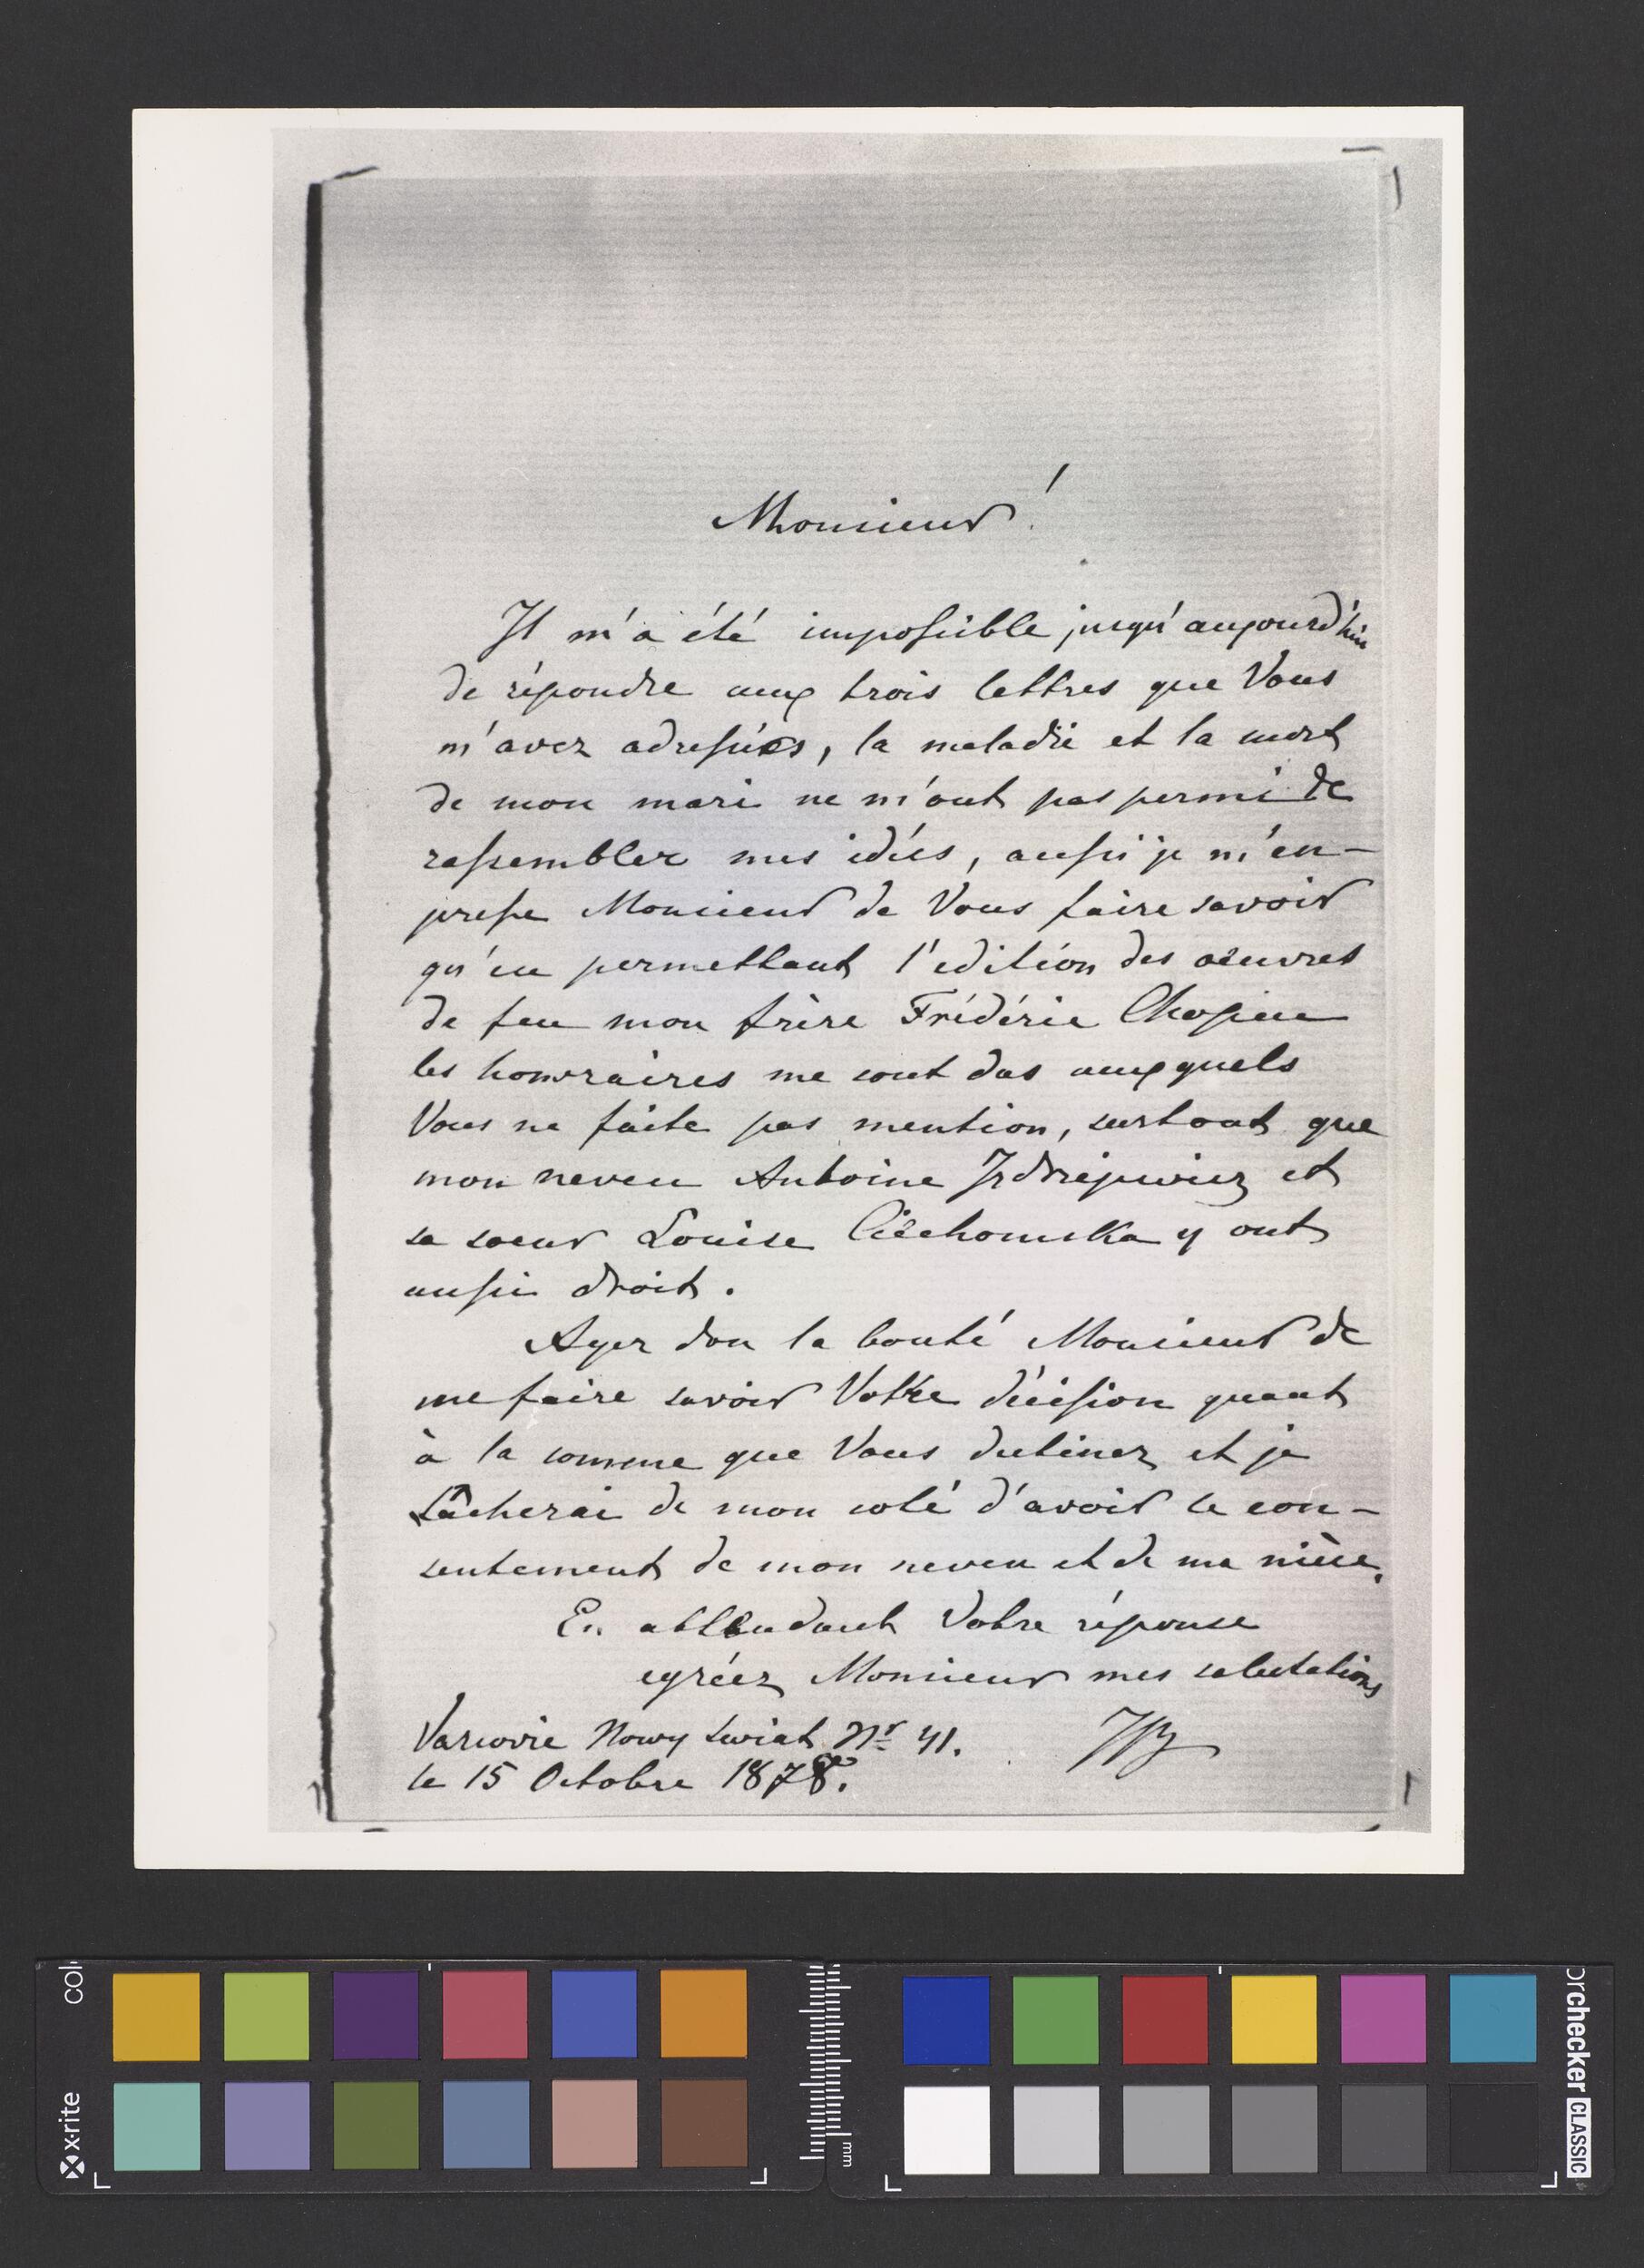 Monsieur!
Il m'a été impossible jusqu'aujourd'hui
de répondre aux trois lettres que Vous
m'avez adressées, la maladie et la mort
de mon mari ne m'ont pas permi de
rassembler mes idées, aussi je m'em-
presse Monsieur de Vous faire savoir
qu'en permettant l'edition des oeuvres
de feu mon frère Frédéric Chopin
les honoraires me sont dus auxquels
Vous ne faite pas mention, surtout que
mon neveu Antoine Jedrzejewicz et
sa soeur Louise Ciechomska y ont
aussi droit.
Ayez don la bonté Monsieur de
me faire savoir Votre décission quant
à la somme que Vous destinez et je
tâcherai de mon coté d'avoir le con-
sentement de mon neveu et de ma nièce.
En attendant Votre réponse
agréez Monsieur mes salutations
Varsovie Nowy Swiat Nr 41. IB
le 15 Octobre 1878.
x-rite
col
mm
orchecker CLASSIC